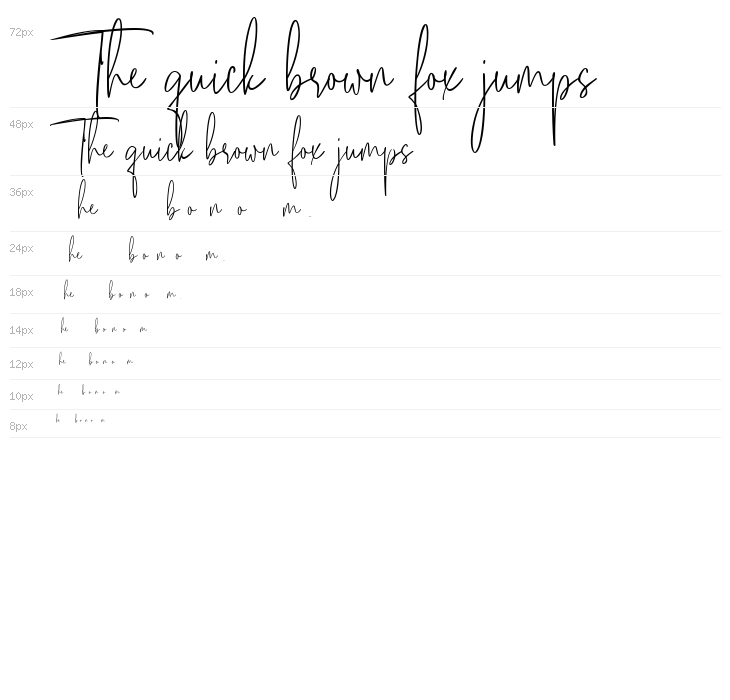 72px The quick brown fox jumps
48px The quick brown fox jumps
36px he b o n o m .
24px he b o n o m .
18px he b o n o m .
14px he b o n o m
12px he b o n o m
10px he b o n o m
8px h b o n o m